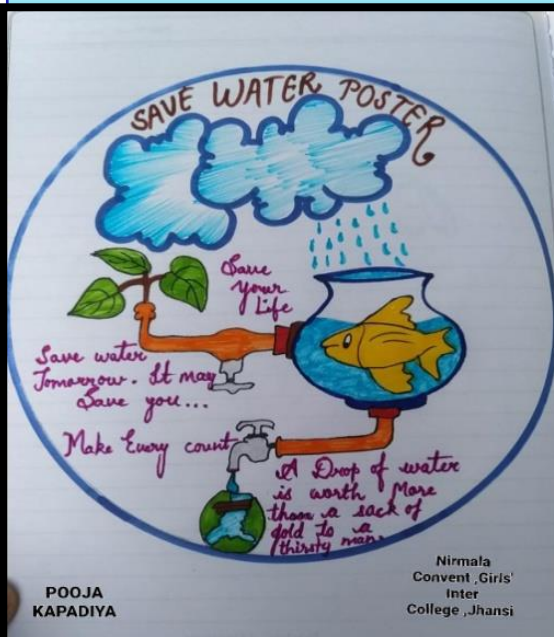 SAVE WATER POSTER
Save
your
Life
Save water
Tomorrow. It may
Save you...
Make Every count
A Drop of water
is worth More
than a sack of
gold to a
thirsty man
POOJA
KAPADIYA
Nirmala
Convent ,Girls'
Inter
College ,Jhansi